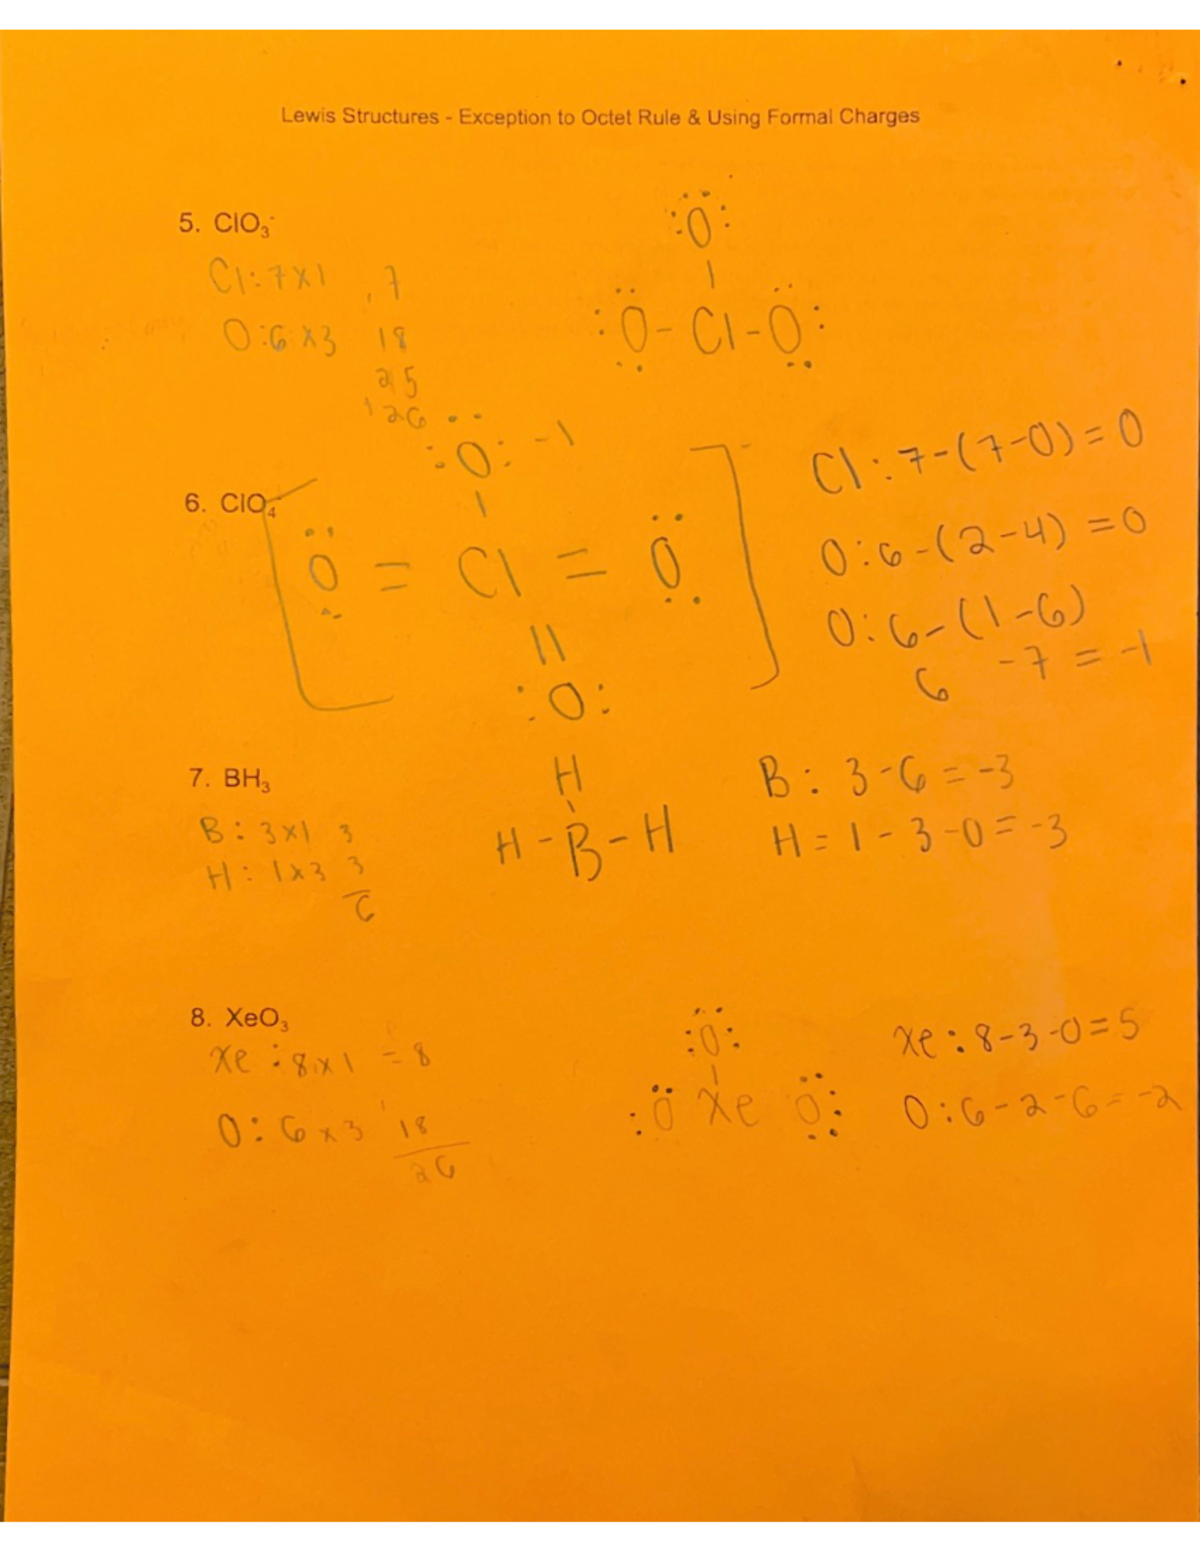 Lewis Structures - Exception to Octet Rule & Using Formal Charges
5. ClO₃⁻
Cl: 7x1 7
O: 6 x3 18
25
+26
:O:
|
:O - Cl - O:
6. ClO₄⁻
:O: -1
|
O = Cl = O
||
:O:
-
Cl: 7-(7-0)=0
O: 6-(2-4)=0
O: 6-(1-6)
6 -7 = -1
7. BH₃
B: 3x1 3
H: 1x3 3
6
H
|
H-B-H
B: 3-6=-3
H = 1-3-0=-3
8. XeO₃
Xe: 8x1 =8
O: 6x3 18
26
:O:
|
:O Xe O:
Xe: 8-3-0=5
O: 6-2-6=-2